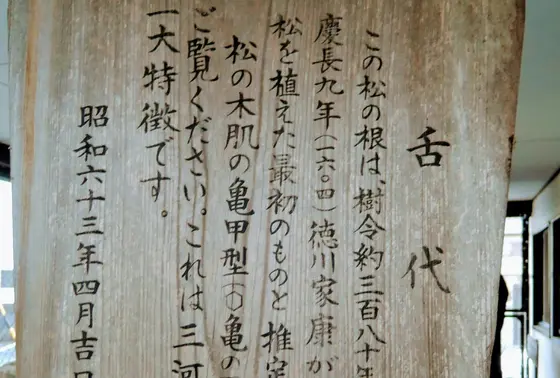 舌代
この松の根は、樹令約三百八十年
慶長九年(一六〇四)徳川家康が
松を植えた最初のものと推定
松の木肌の亀甲型(〇)亀の
ご覧ください。これは三河
一大特徴です。
昭和六十三年四月吉日